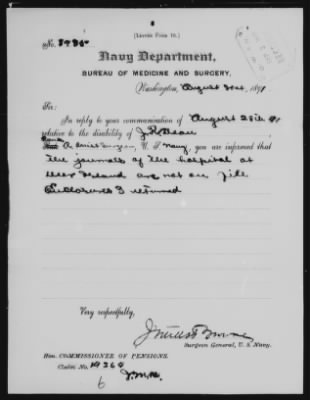 [LETTER FORM 10.]
No.
Navy Department,
BUREAU OF MEDICINE AND SURGERY,
Washington, August 31st, 1891
Sir:
In reply to your communication of August 28th 91
relative to the disability of
Surgeon, U. S. Navy, you are informed that
the journals of the hospital at
Island are not on file
Enclosures 3 returned
Very respectfully,
Surgeon General, U. S. Navy.
Hon. COMMISSIONER OF PENSIONS.
Claim No.
6